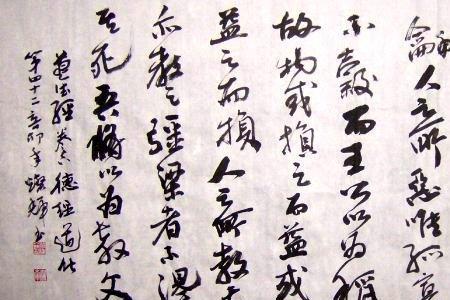 龢人之所惡唯孤寡
不穀而王公以為稱
故物或損之而益或
益之而損人之所教我
亦教之彊梁者不得
其死吾將以為教父
經卷德經道化
第四十二辛卯年書